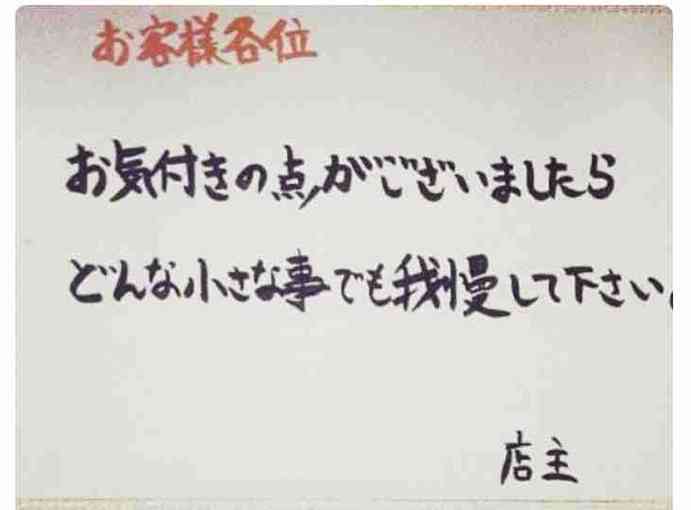 お客様各位
お気付きの点がございましたら
どんな小さな事でも我慢して下さい。
店主